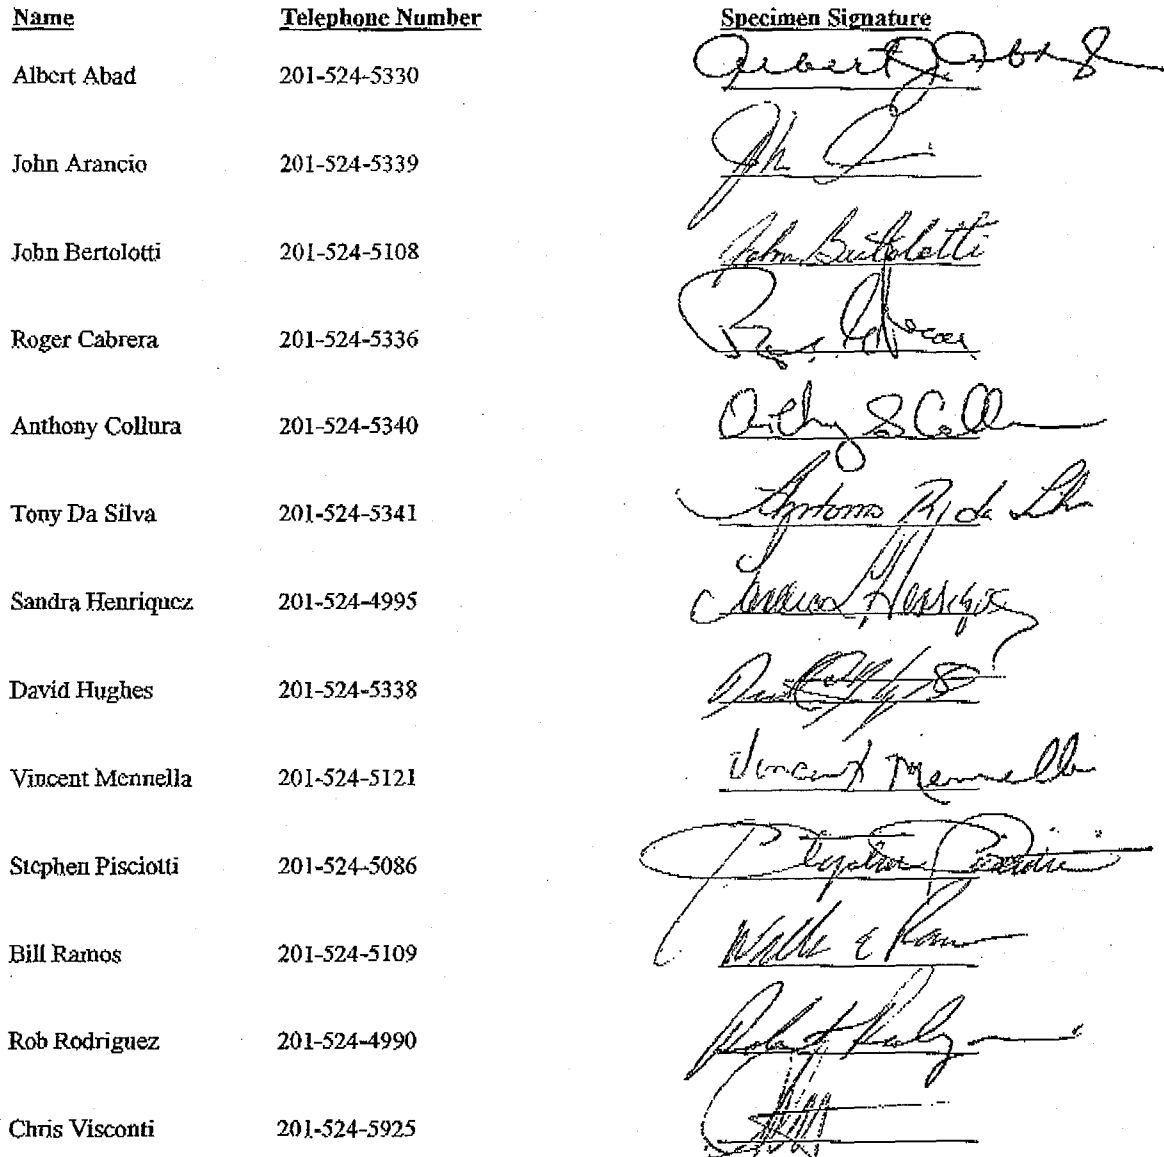 Name Telephone Number Specimen Signature
Albert Abad 201-524-5330 Albert J. Abad
John Arancio 201-524-5339 John
John Bertolotti 201-524-5108 John Bertolotti
Roger Cabrera 201-524-5336
Anthony Collura 201-524-5340
Tony Da Silva 201-524-5341 Antonio R. da Silva
Sandra Henriquez 201-524-4995 Sandra Henriquez
David Hughes 201-524-5338
Vincent Mennella 201-524-5121 Vincent Mennella
Stephen Pisciotti 201-524-5086 Stephen
Bill Ramos 201-524-5109
Rob Rodriguez 201-524-4990
Chris Visconti 201-524-5925